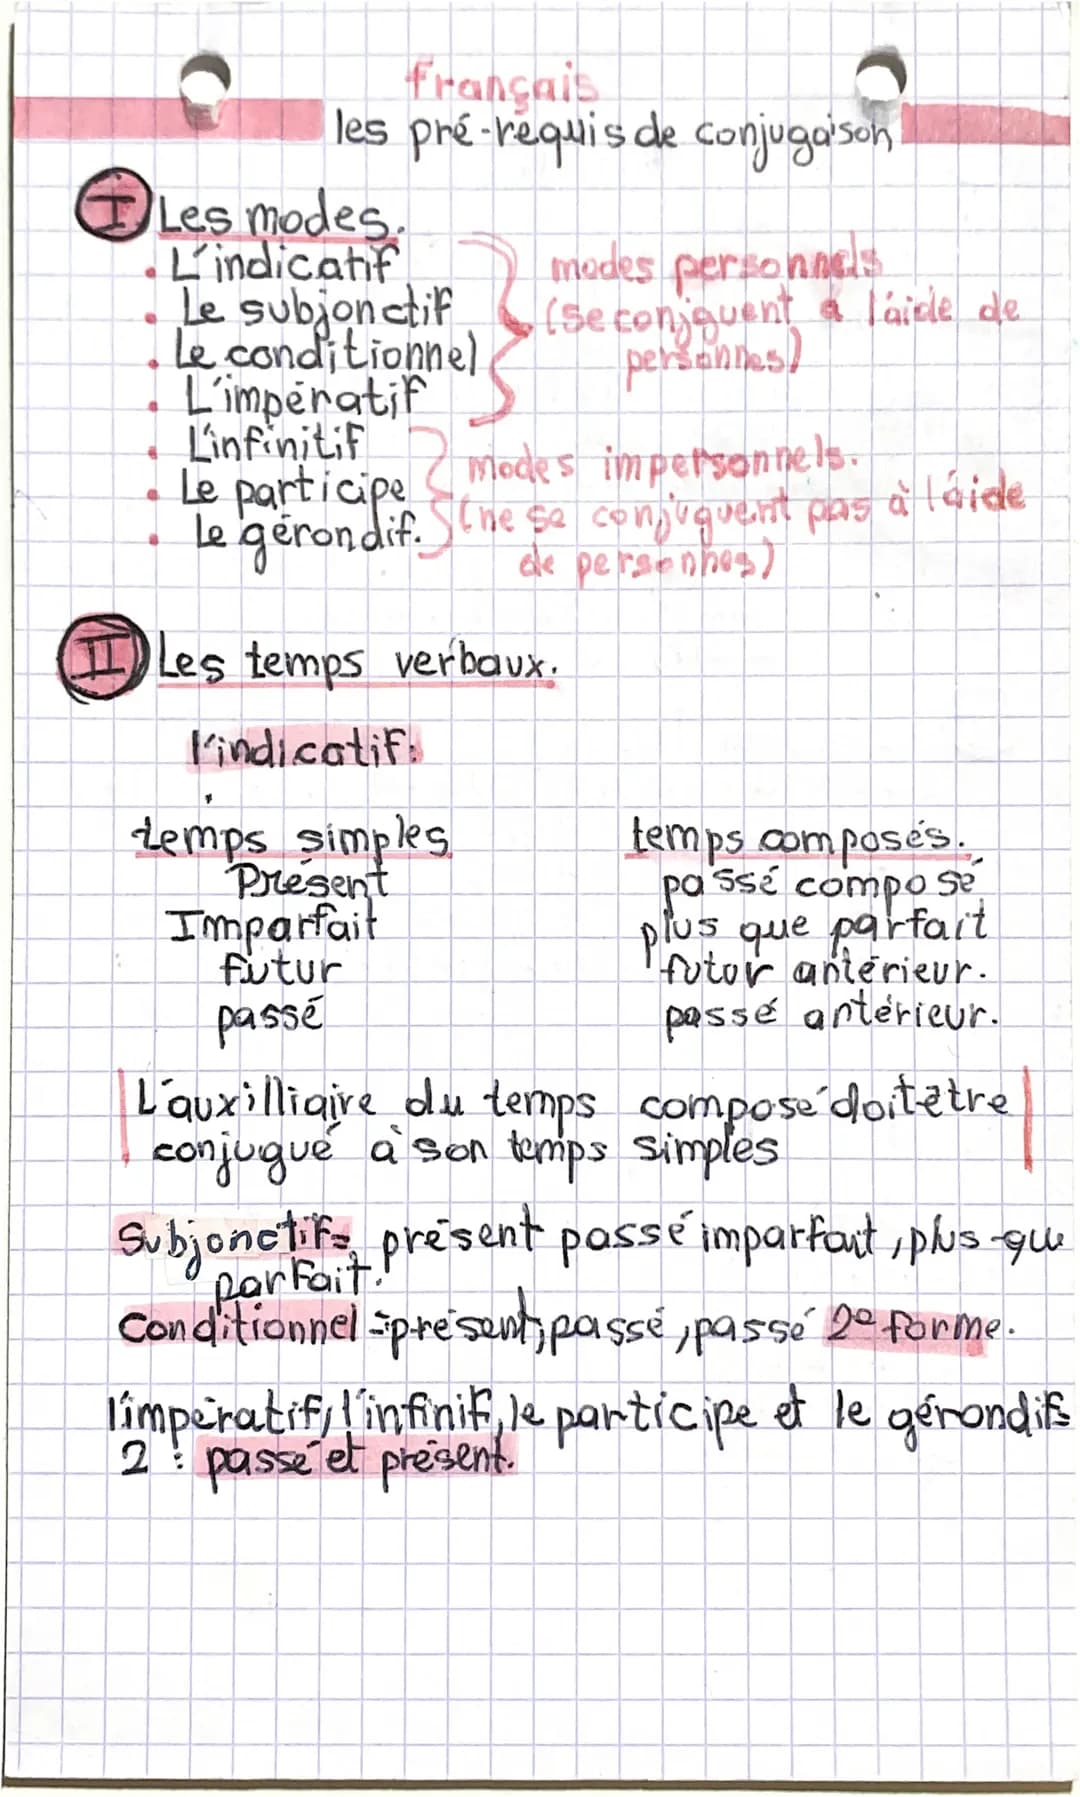 français
les pré-requis de conjugaison
I Les modes.
. L'indicatif
. Le subjonctif
. Le conditionnel
. L'impératif
modes personnels
(se conjguent a l'aide de
personnes)
. L'infinitif
. Le participe
. Le gérondif.
modes impersonnels.
(ne se conjuguent pas à l'aide
de personnes)
II Les temps verbaux.
l'indicatif:
temps simples
Présent
Imparfait
futur
passé
temps composés.
passé composé
plus que parfait
futur antérieur.
passé antérieur.
L'auxilliaire du temps composé doit etre
conjugué à son temps simples
Subjonctif= présent passé imparfait, plus-que
parfait.
Conditionnel = présent, passé, passé 2e forme.
l'impératif, l'infinif, le participe et le gérondif=
2 : passé et présent.